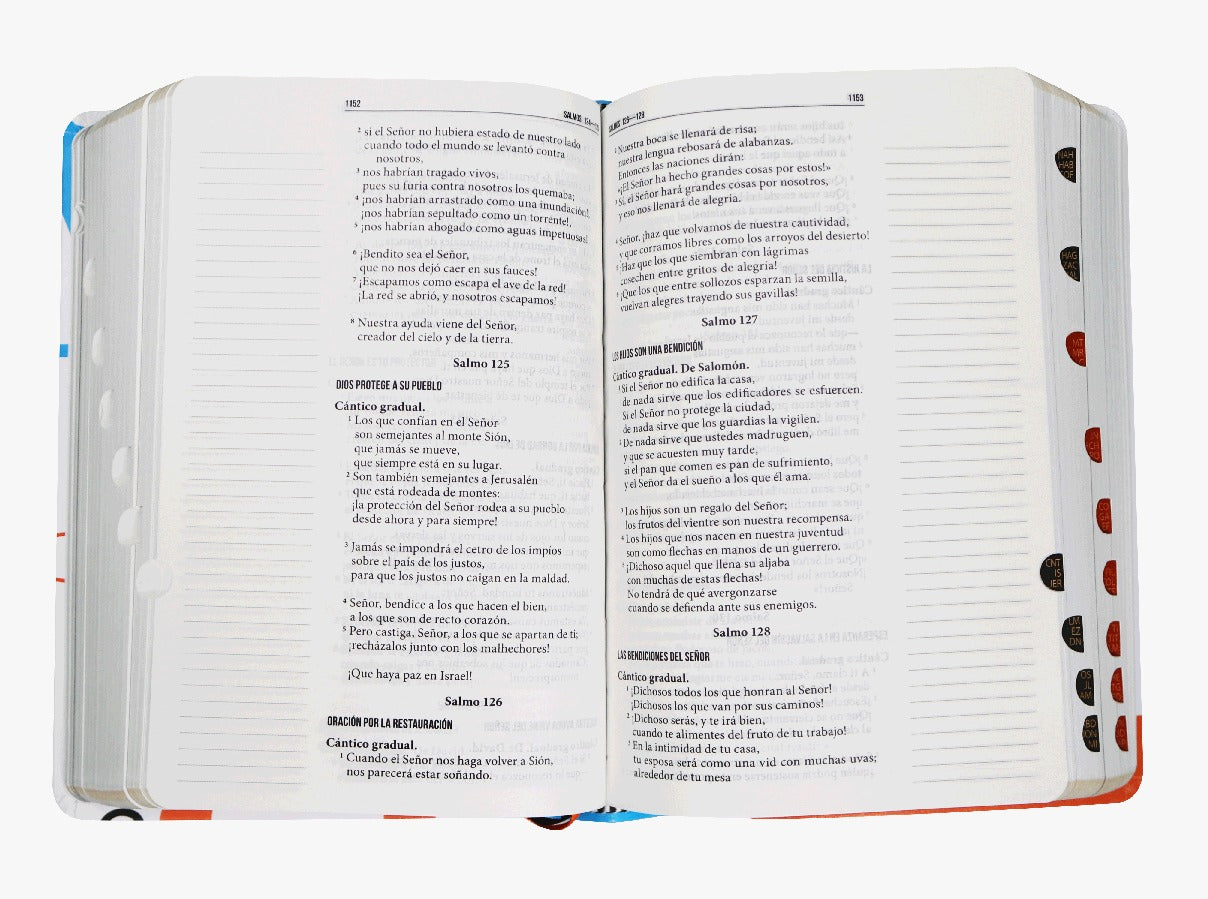 1152
SALMOS
² si el Señor no hubiera estado de nuestro lado
cuando todo el mundo se levantó contra
nosotros,
³ nos habrían tragado vivos,
pues su furia contra nosotros los quemaba;
⁴ ¡nos habrían arrastrado como una inundación!,
¡nos habrían sepultado como un torrente!,
⁵ ¡nos habrían ahogado como aguas impetuosas!
⁶ ¡Bendito sea el Señor,
que no nos dejó caer en sus fauces!
⁷ ¡Escapamos como escapa el ave de la red!
¡La red se abrió, y nosotros escapamos!
⁸ Nuestra ayuda viene del Señor,
creador del cielo y de la tierra.
Salmo 125
DIOS PROTEGE A SU PUEBLO
Cántico gradual.
¹ Los que confían en el Señor
son semejantes al monte Sión,
que jamás se mueve,
que siempre está en su lugar.
² Son también semejantes a Jerusalén
que está rodeada de montes:
¡la protección del Señor rodea a su pueblo
desde ahora y para siempre!
³ Jamás se impondrá el cetro de los impíos
sobre el país de los justos,
para que los justos no caigan en la maldad.
⁴ Señor, bendice a los que hacen el bien,
a los que son de recto corazón.
⁵ Pero castiga, Señor, a los que se apartan de ti;
¡recházalos junto con los malhechores!
¡Que haya paz en Israel!
Salmo 126
ORACIÓN POR LA RESTAURACIÓN
Cántico gradual.
¹ Cuando el Señor nos haga volver a Sión,
nos parecerá estar soñando.
1153
SALMOS 126—128
² Nuestra boca se llenará de risa;
nuestra lengua rebosará de alabanzas.
Entonces las naciones dirán:
«¡El Señor ha hecho grandes cosas por estos!»
³ Sí, el Señor hará grandes cosas por nosotros,
y eso nos llenará de alegría.
⁴ Señor, ¡haz que volvamos de nuestra cautividad,
y que corramos libres como los arroyos del desierto!
⁵ ¡Haz que los que siembran con lágrimas
cosechen entre gritos de alegría!
⁶ ¡Que los que entre sollozos esparzan la semilla,
vuelvan alegres trayendo sus gavillas!
Salmo 127
LOS HIJOS SON UNA BENDICIÓN
Cántico gradual. De Salomón.
¹ Si el Señor no edifica la casa,
de nada sirve que los edificadores se esfuercen.
Si el Señor no protege la ciudad,
de nada sirve que los guardias la vigilen.
² De nada sirve que ustedes madruguen,
y que se acuesten muy tarde,
si el pan que comen es pan de sufrimiento,
y el Señor da el sueño a los que él ama.
³ Los hijos son un regalo del Señor;
los frutos del vientre son nuestra recompensa.
⁴ Los hijos que nos nacen en nuestra juventud
son como flechas en manos de un guerrero.
⁵ ¡Dichoso aquel que llena su aljaba
con muchas de estas flechas!
No tendrá de qué avergonzarse
cuando se defienda ante sus enemigos.
Salmo 128
LAS BENDICIONES DEL SEÑOR
Cántico gradual.
¹ ¡Dichosos todos los que honran al Señor!
¡Dichosos los que van por sus caminos!
² ¡Dichoso serás, y te irá bien,
cuando te alimentes del fruto de tu trabajo!
³ En la intimidad de tu casa,
tu esposa será como una vid con muchas uvas;
alrededor de tu mesa
NAH
HAB
HAG
ZAC
MT
CNT
IS
JER
EZ
OS
JL
AM